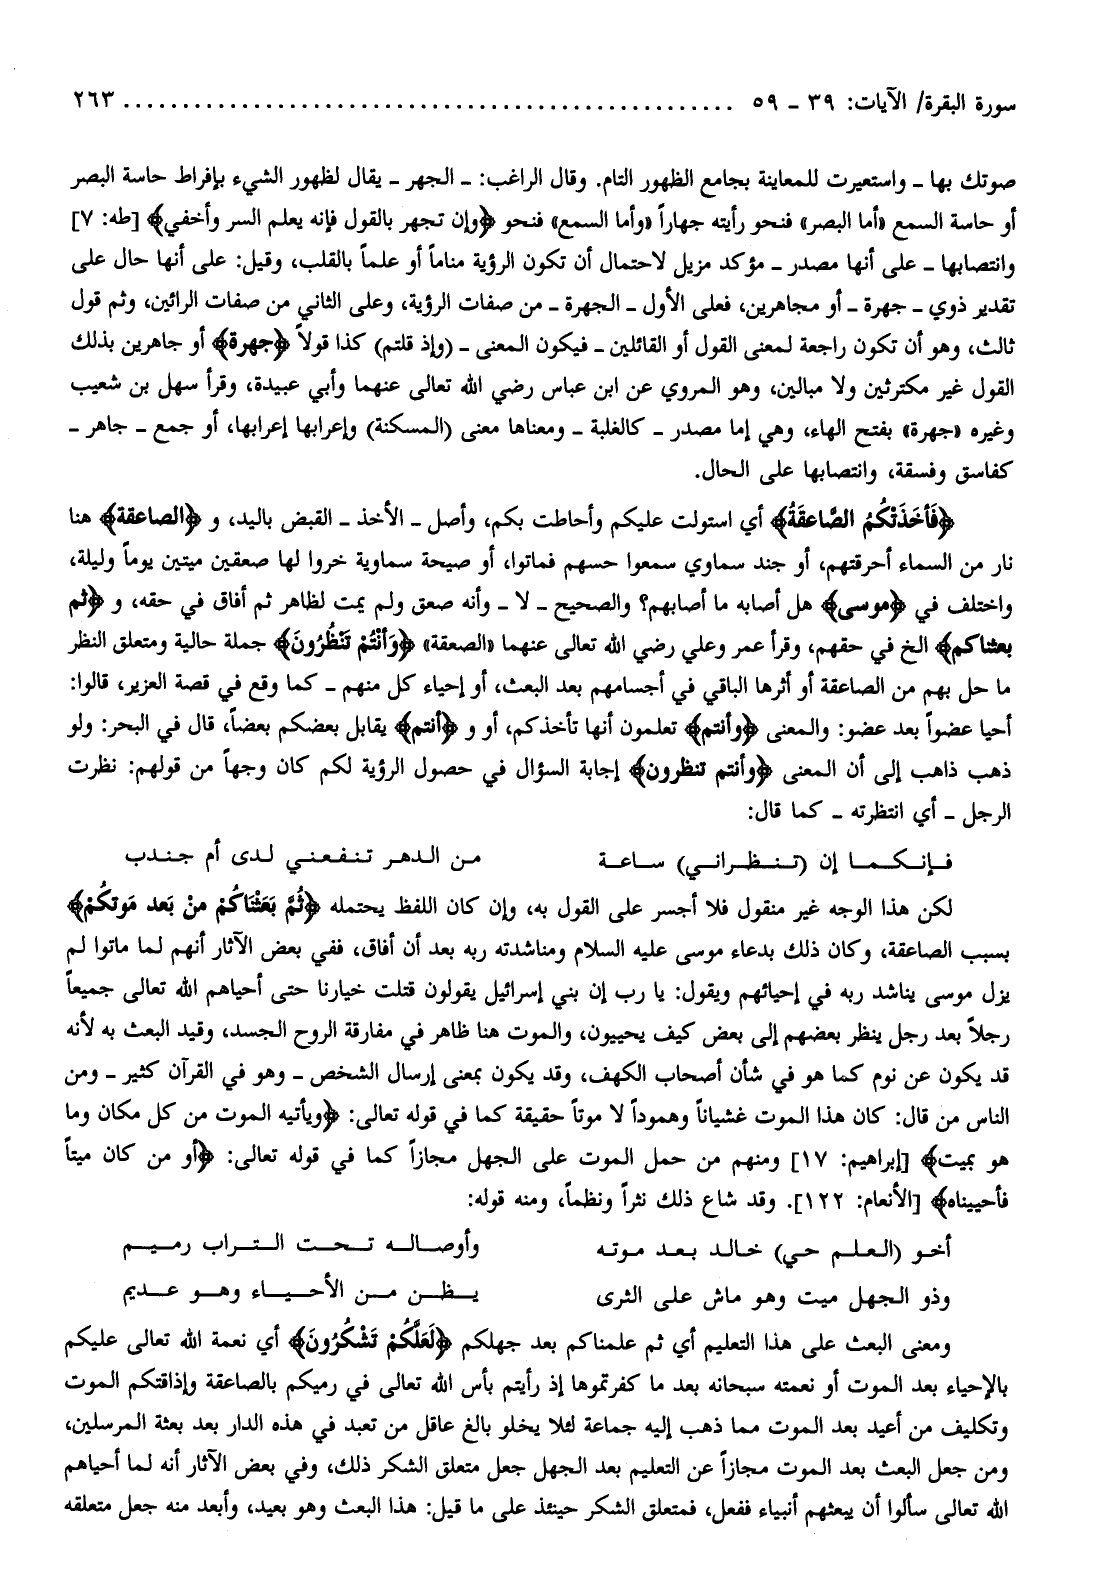 سورة البقرة/ الآيات: ٣٩ ـ ٥٩ ................................................... ٢٦٣
صوتك بها ـ واستعيرت للمعاينة بجامع الظهور التام. وقال الراغب: ـ الجهر ـ يقال لظهور الشيء بإفراط حاسة البصر
أو حاسة السمع «أما البصر» فنحو رأيته جهاراً «وأما السمع» فنحو ﴿وإن تجهر بالقول فإنه يعلم السر وأخفي﴾ [طه: ٧]
وانتصابها ـ على أنها مصدر ـ مؤكد مزيل لاحتمال أن تكون الرؤية مناماً أو علماً بالقلب، وقيل: على أنها حال على
تقدير ذوي ـ جهرة ـ أو مجاهرين، فعلى الأول ـ الجهرة ـ من صفات الرؤية، وعلى الثاني من صفات الرائين، وثم قول
ثالث، وهو أن تكون راجعة لمعنى القول أو القائلين ـ فيكون المعنى ـ (وإذ قلتم) كذا قولاً ﴿جهرة﴾ أو جاهرين بذلك
القول غير مكترثين ولا مبالين، وهو المروي عن ابن عباس رضي الله تعالى عنهما وأبي عبيدة، وقرأ سهل بن شعيب
وغيره «جهرة» بفتح الهاء، وهي إما مصدر ـ كالغلبة ـ ومعناها معنى (المسكنة) وإعرابها إعرابها، أو جمع ـ جاهر ـ
كفاسق وفسقة، وانتصابها على الحال.
﴿فَأخَذَتْكُمُ الصَّاعقَةُ﴾ أي استولت عليكم وأحاطت بكم، وأصل ـ الأخذ ـ القبض باليد، و ﴿الصاعقة﴾ هنا
نار من السماء أحرقتهم، أو جند سماوي سمعوا حسهم فماتوا، أو صيحة سماوية خروا لها صعقين ميتين يوماً وليلة،
واختلف في ﴿موسى﴾ هل أصابه ما أصابهم؟ والصحيح ـ لا ـ وأنه صعق ولم يمت لظاهر ثم أفاق في حقه، و ﴿ثم
بعثناكم﴾ الخ في حقهم، وقرأ عمر وعلي رضي الله تعالى عنهما «الصعقة» ﴿وَأنْتُمْ تَنْظُرُونَ﴾ جملة حالية ومتعلق النظر
ما حل بهم من الصاعقة أو أثرها الباقي في أجسامهم بعد البعث، أو إحياء كل منهم ـ كما وقع في قصة العزير، قالوا:
أحيا عضواً بعد عضو: والمعنى ﴿وأنتم﴾ تعلمون أنها تأخذكم، أو و ﴿أنتم﴾ يقابل بعضكم بعضاً، قال في البحر: ولو
ذهب ذاهب إلى أن المعنى ﴿وأنتم تنظرون﴾ إجابة السؤال في حصول الرؤية لكم كان وجهاً من قولهم: نظرت
الرجل ـ أي انتظرته ـ كما قال:
فإنكما إن (تنظراني) ساعة من الدهر تنفعني لدى أم جندب
لكن هذا الوجه غير منقول فلا أجسر على القول به، وإن كان اللفظ يحتمله ﴿ثُمَّ بَعَثْنَاكُمْ منْ بَعد مَوتكُمْ﴾
بسبب الصاعقة، وكان ذلك بدعاء موسى عليه السلام ومناشدته ربه بعد أن أفاق، ففي بعض الآثار أنهم لما ماتوا لم
يزل موسى يناشد ربه في إحيائهم ويقول: يا رب إن بني إسرائيل يقولون قتلت خيارنا حتى أحياهم الله تعالى جميعاً
رجلاً بعد رجل ينظر بعضهم إلى بعض كيف يحييون، والموت هنا ظاهر في مفارقة الروح الجسد، وقيد البعث به لأنه
قد يكون عن نوم كما هو في شأن أصحاب الكهف، وقد يكون بمعنى إرسال الشخص ـ وهو في القرآن كثير ـ ومن
الناس من قال: كان هذا الموت غشياناً وهموداً لا موتاً حقيقة كما في قوله تعالى: ﴿ويأتيه الموت من كل مكان وما
هو بميت﴾ [إبراهيم: ١٧] ومنهم من حمل الموت على الجهل مجازاً كما في قوله تعالى: ﴿أو من كان ميتاً
فأحييناه﴾ [الأنعام: ١٢٢]. وقد شاع ذلك نثراً ونظماً، ومنه قوله:
أخو (العلم حي) خالد بعد موته وأوصاله تحت التراب رميم
وذو الجهل ميت وهو ماش على الثرى يظن من الأحياء وهو عديم
ومعنى البعث على هذا التعليم أي ثم علمناكم بعد جهلكم ﴿لَعَلَّكُمْ تَشْكُرُونَ﴾ أي نعمة الله تعالى عليكم
بالإحياء بعد الموت أو نعمته سبحانه بعد ما كفرتموها إذ رأيتم بأس الله تعالى في رميكم بالصاعقة وإذاقتكم الموت
وتكليف من أعيد بعد الموت مما ذهب إليه جماعة لئلا يخلو بالغ عاقل من تعبد في هذه الدار بعد بعثة المرسلين،
ومن جعل البعث بعد الموت مجازاً عن التعليم بعد الجهل جعل متعلق الشكر ذلك، وفي بعض الآثار أنه لما أحياهم
الله تعالى سألوا أن يبعثهم أنبياء ففعل، فمتعلق الشكر حينئذ على ما قيل: هذا البعث وهو بعيد، وأبعد منه جعل متعلقه